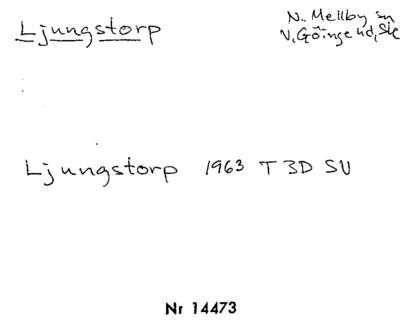 Ljungstorp
N. Mellby sn
V. Göinge hd, Sk
Ljungstorp 1963 T 3D SV
Nr 14473